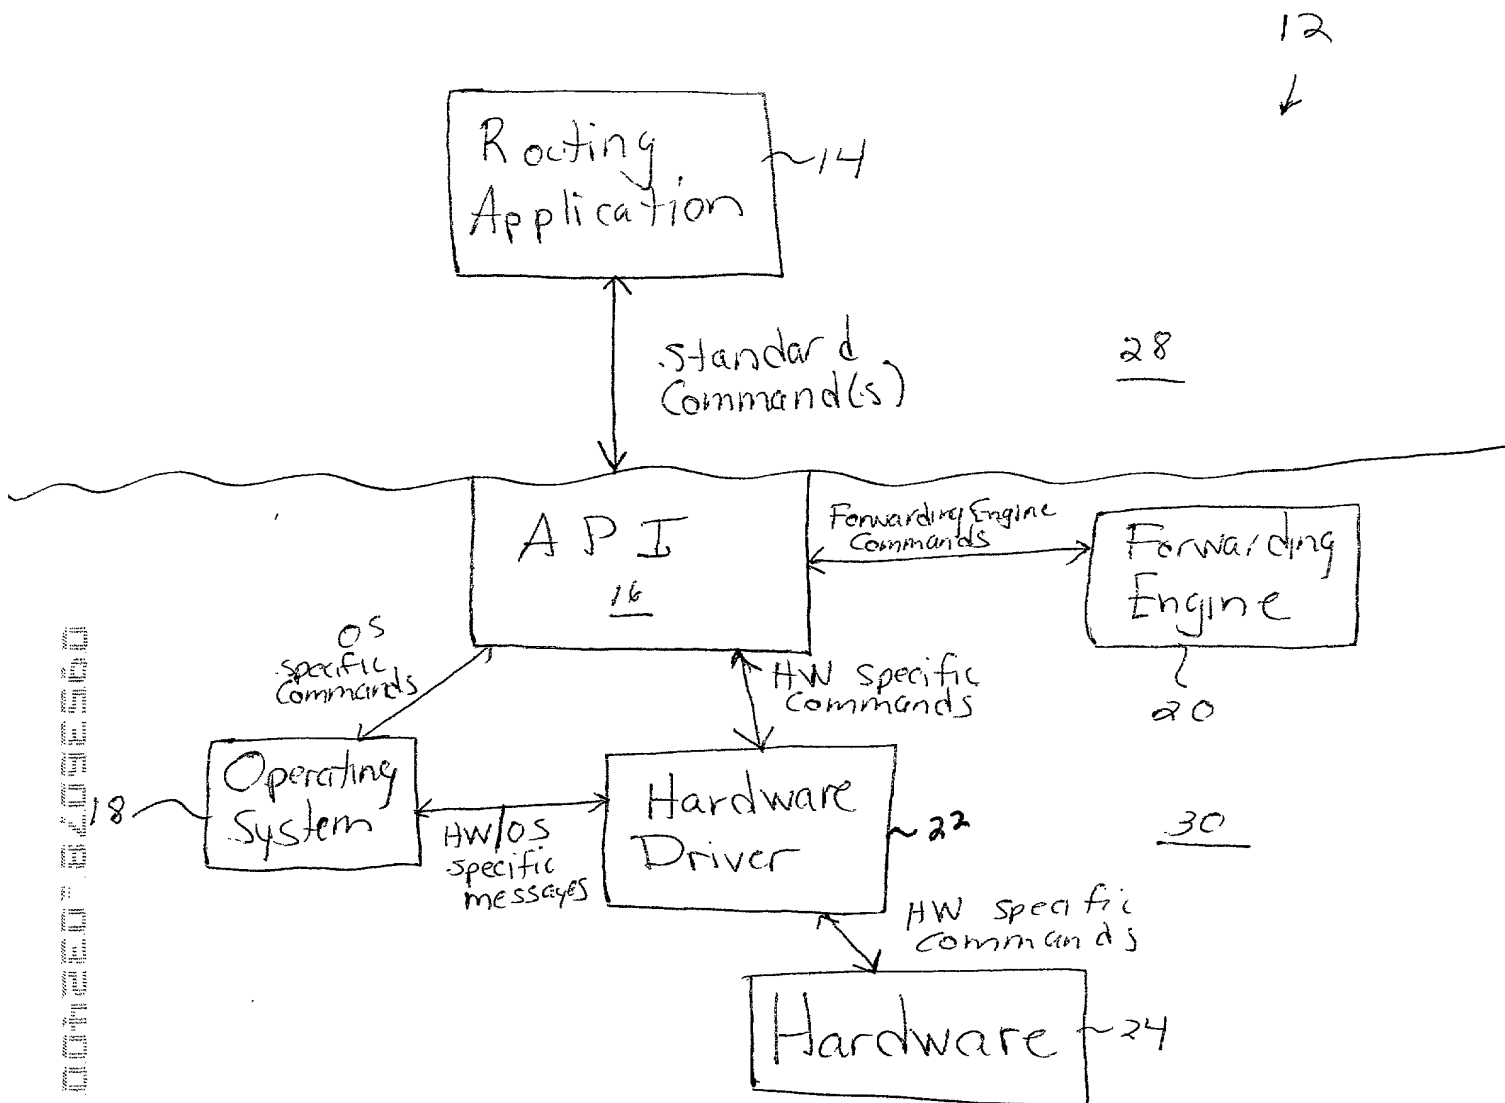 12
Routing
Application
~14
Standard
Command(s)
28
API
16
Forwarding Engine
Commands
Forwarding
Engine
20
OS
specific
Commands
HW specific
commands
Operating
System
18
HW/OS
specific
messages
Hardware
Driver
~22
30
HW specific
commands
Hardware
~24
09536078.032400